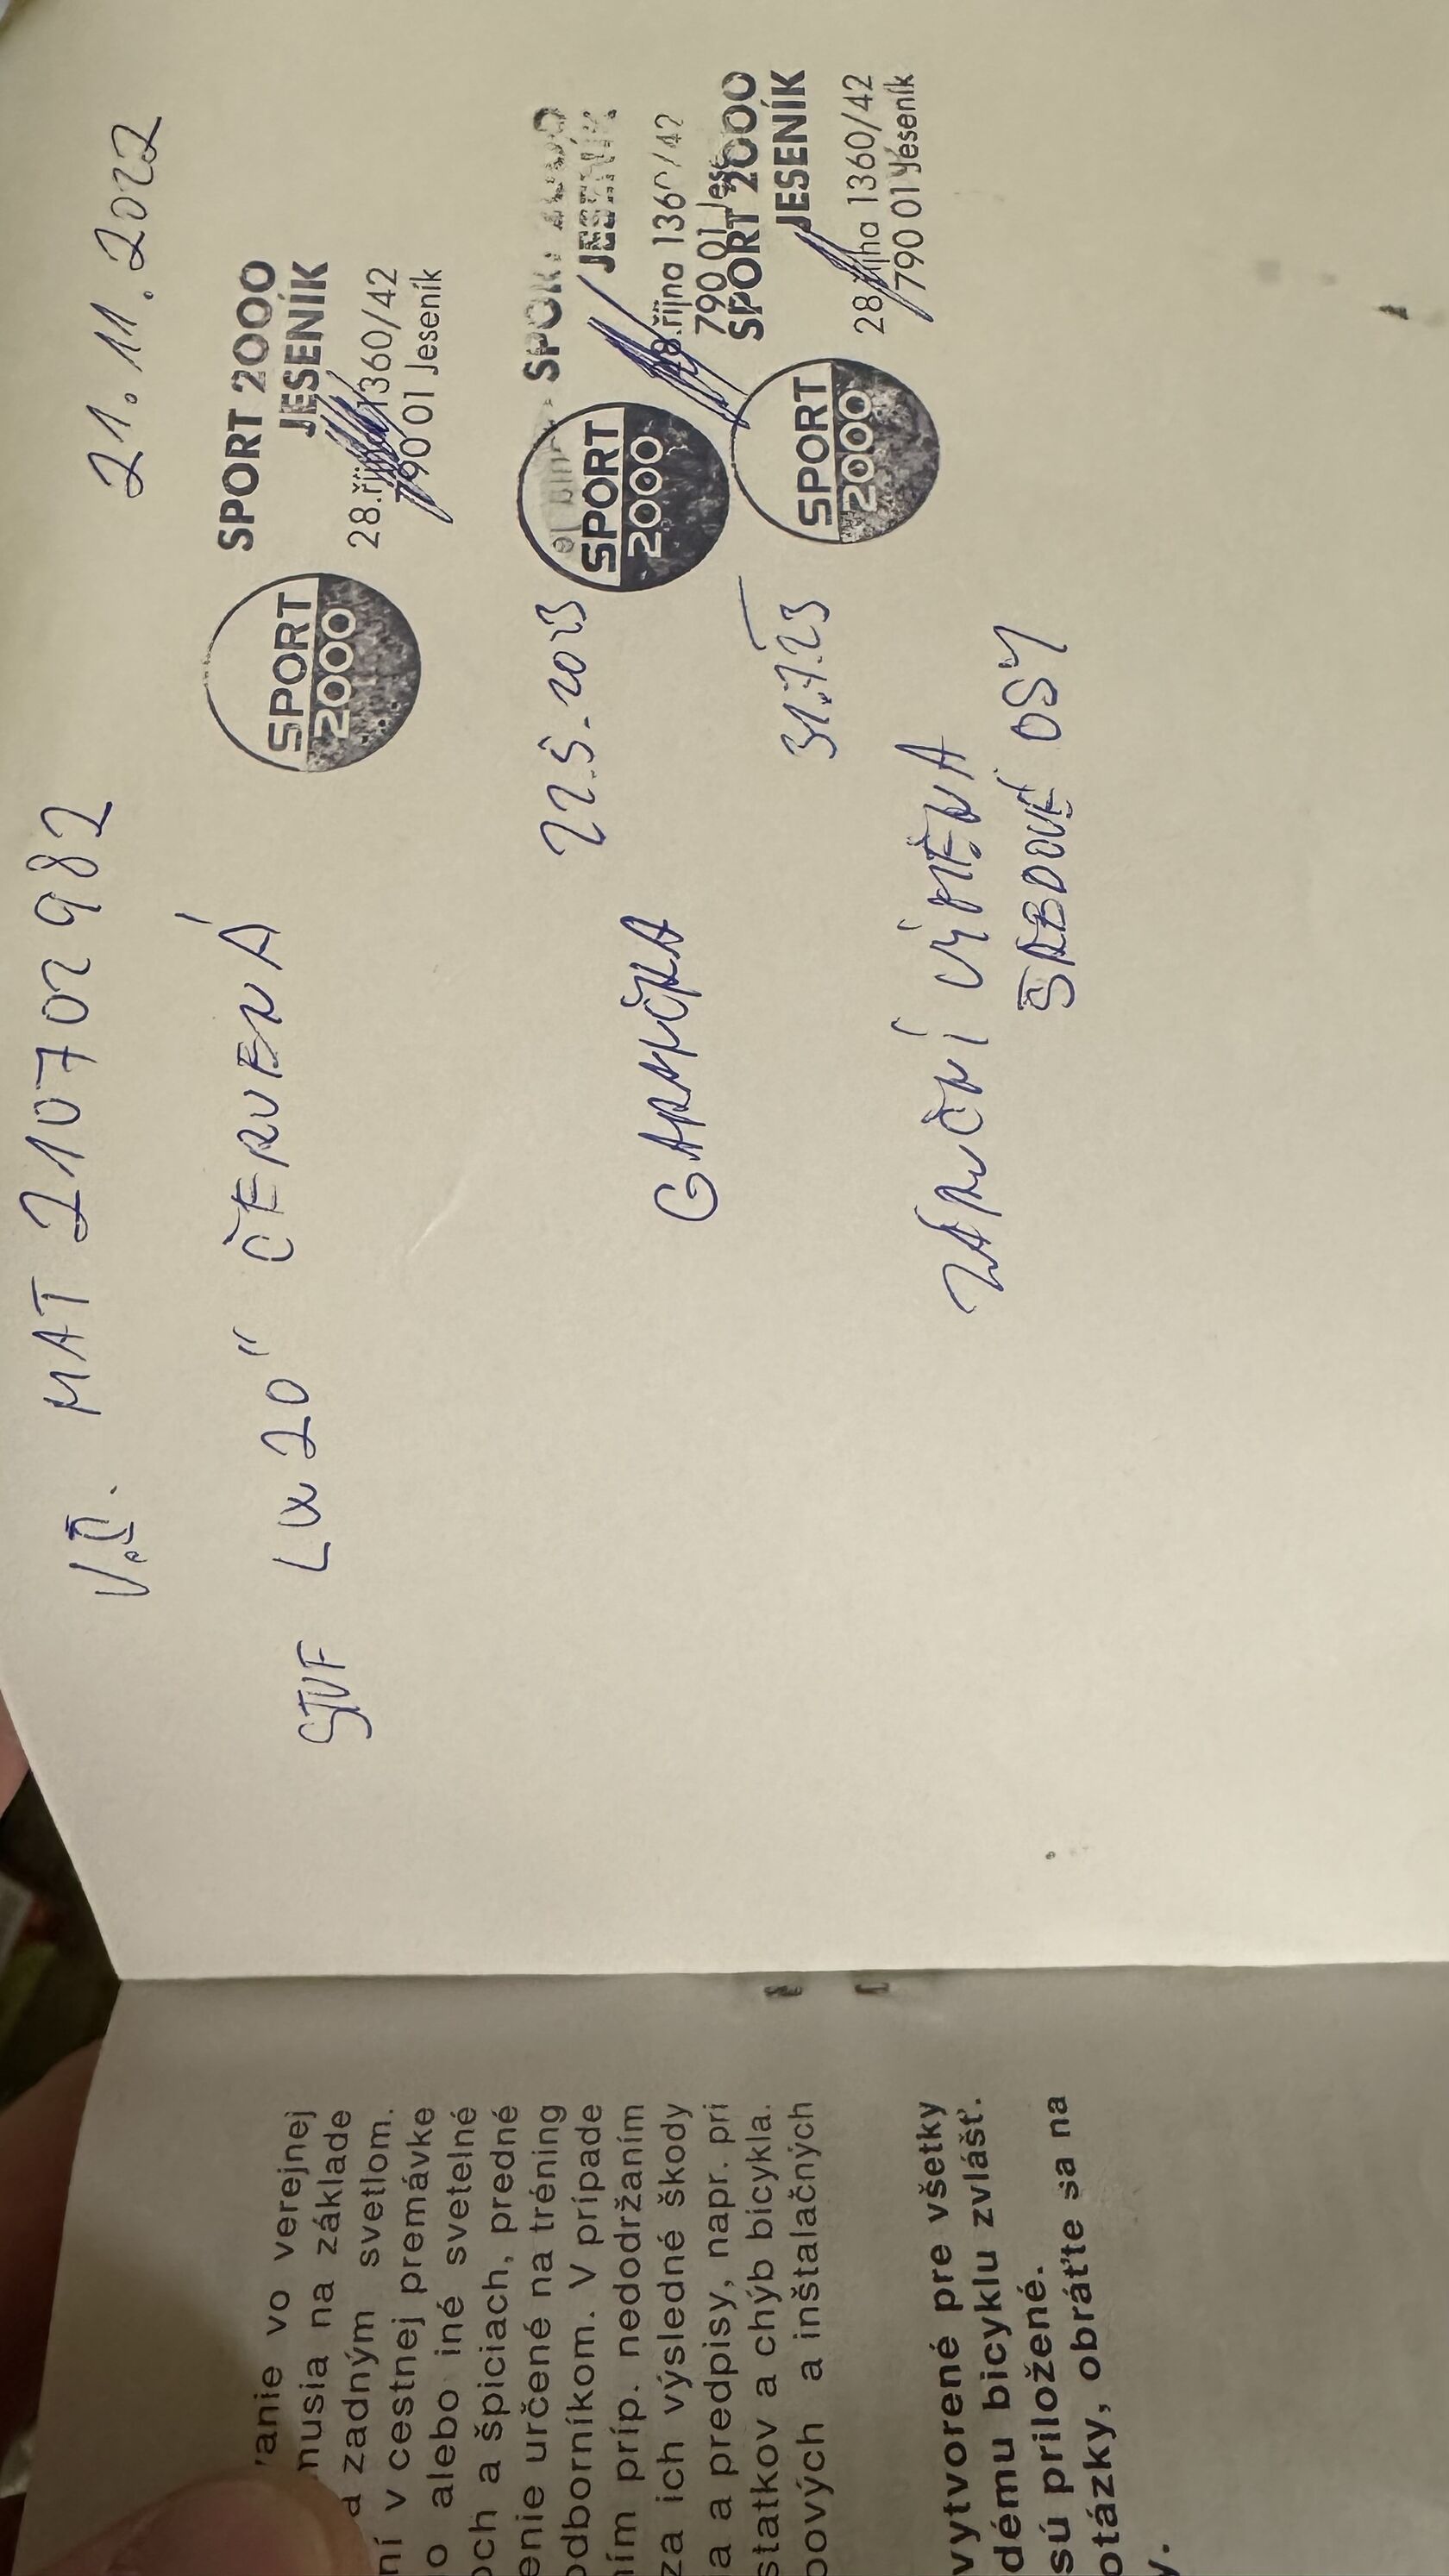 V.Č. MAT 210702982 21.11.2022
STUF LUX 20" ČERVENÁ
SPORT 2000
SPORT 2000
JESENÍK
28.října 1360/42
790 01 Jeseník
GARANČKA
22.5.2023
SPORT
2000
JESENÍK
28.října 1360/42
790 01
31.7.23
SPORT
2000
SPORT 2000
JESENÍK
28.října 1360/42
790 01 Jeseník
ZÁRUČNÍ VÝMĚNA
STŘEDOVÉ OSY
anie vo verejnej
musia na základe
a zadným svetlom.
ní v cestnej premávke
o alebo iné svetelné
och a špiciach, predné
enie určené na tréning
odborníkom. V prípade
ním príp. nedodržaním
za ich výsledné škody
a a predpisy, napr. pri
statkov a chýb bicykla.
bových a inštalačných
vytvorené pre všetky
dému bicyklu zvlášť.
sú priložené.
otázky, obráťte sa na
y.